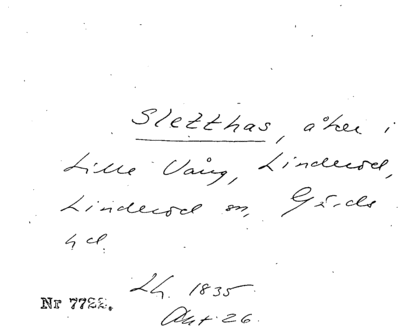 Sletthas, åker i
Lille Vång, Linderöd,
Linderöd sn, Gärds
hd
Lh. 1835
Nr 7722.
Akt 26.